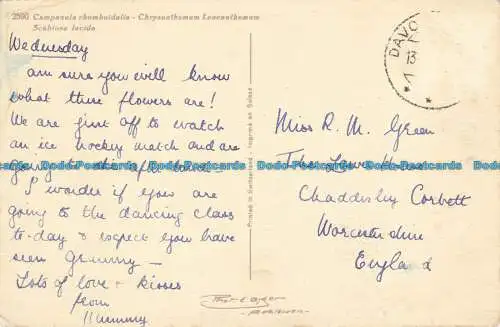 2590 Campanula rhomboidalis - Chrysanthemum Leucanthemum
Scabiosa lucida
Wednesday
am sure you will know
what these flowers are!
We are just off to watch
an ice hockey match and are
going this after
I wonder if you are
going to the dancing class
to-day & expect you have
seen Grammy —
Lots of love & kisses
from
Mummy
Printed in Switzerland - Imprimé en Suisse
DAVO
13
1
Miss R. M. Green
House
Chaddesley Corbett
Worcestershire
England
Dodo-Postcards Dodo-Postcards Dodo-Postcards Dodo-Postcards Dodo-Postcards